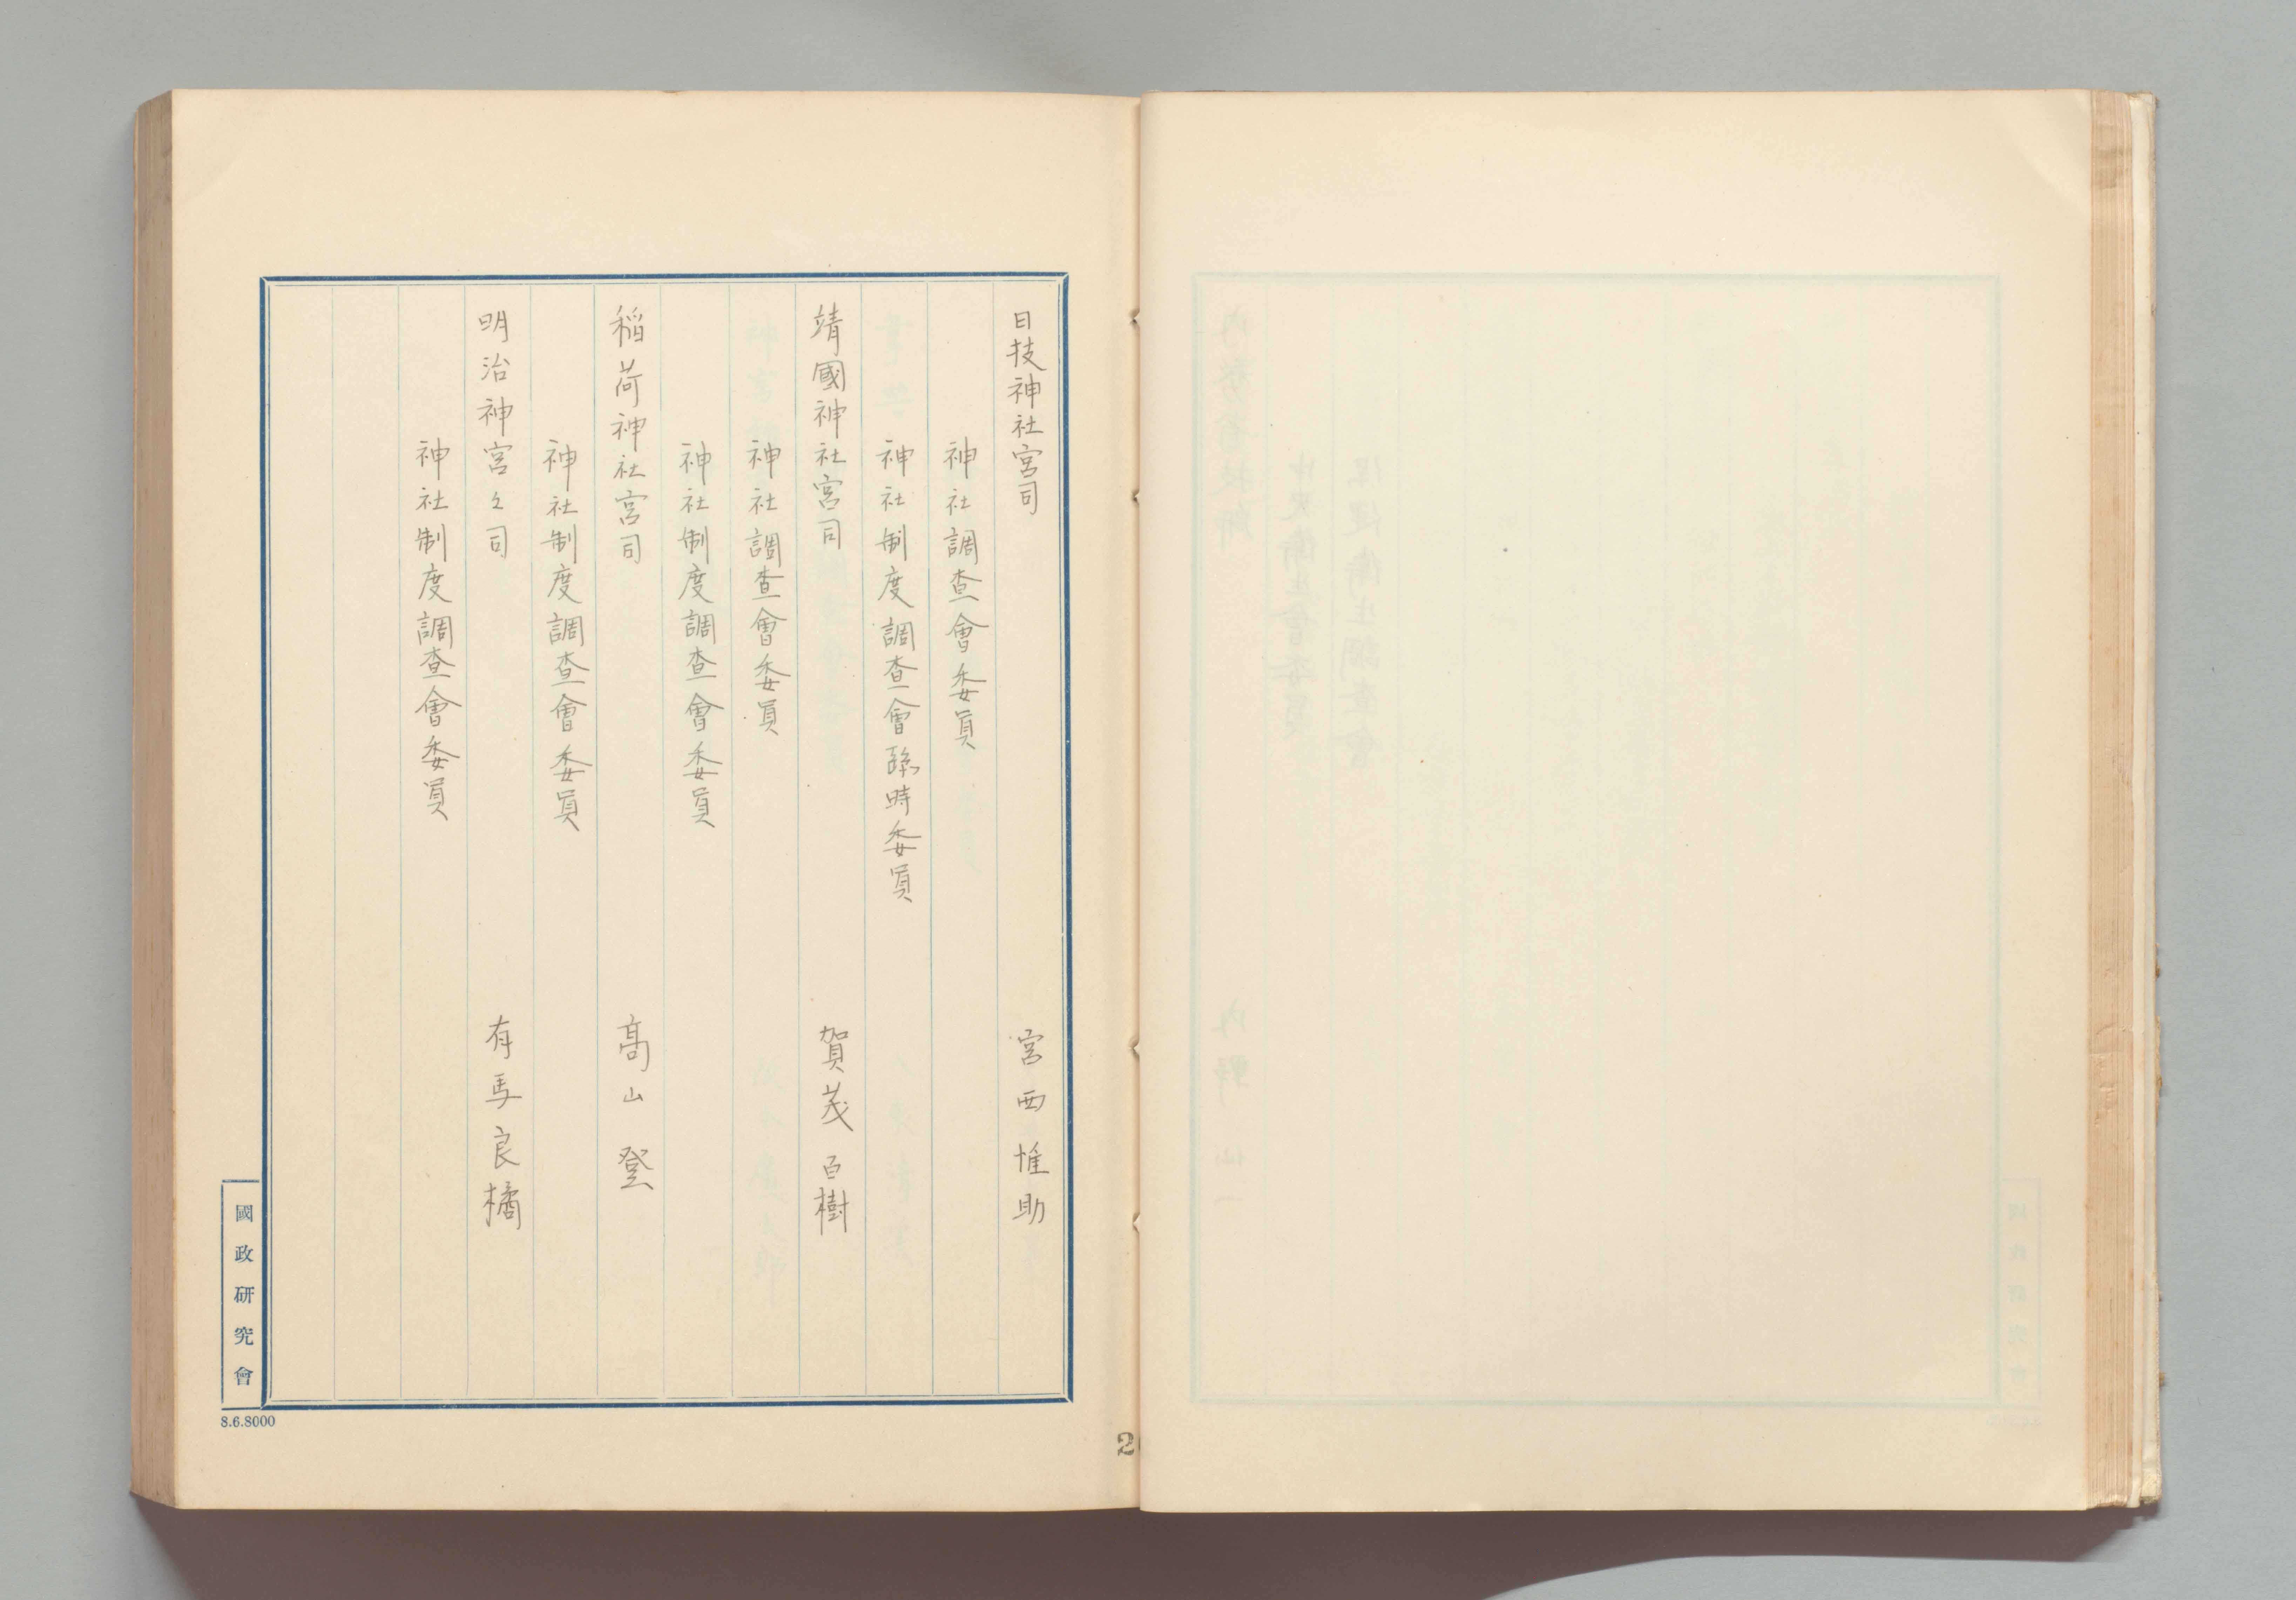 日技神社宮司　宮西惟助
神社調査會委員
神社制度調査會臨時委員
靖國神社宮司　賀茂百樹
神社調査會委員
神社制度調査會委員
稲荷神社宮司　高山登
神社制度調査會委員
明治神宮々司　有馬良橘
神社制度調査會委員
國政研究會
8.6.8000